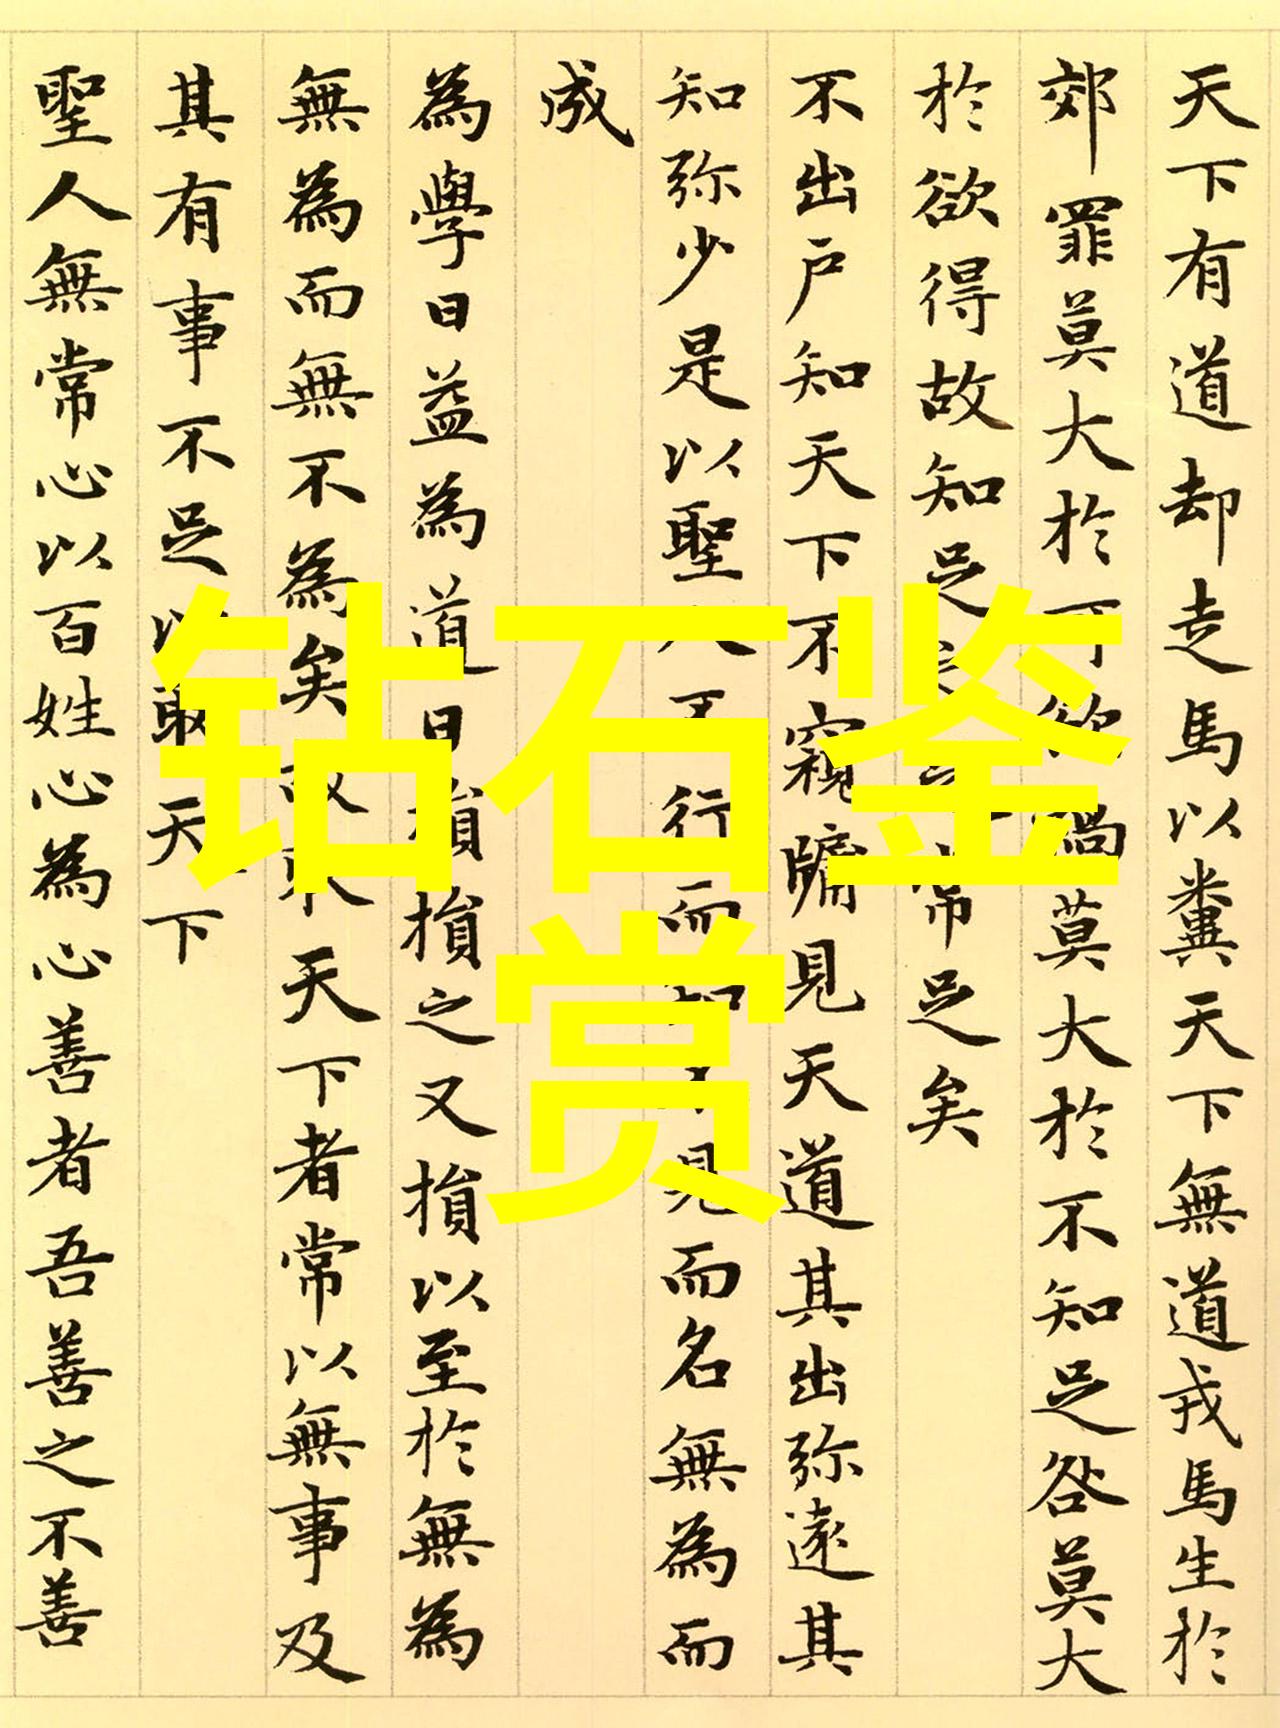 天下有道却走馬以糞天下無道戎馬生於
郊罪莫大於可欲禍莫大於不知足咎莫大
於欲得故知足常足矣
不出户知天下不窺牖見天道其出弥遠其
知弥少是以聖人不行而知不見而名無為而
成
為學日益為道日損損之又損以至於無為
無為而無不為矣故取天下者常以無事及
其有事不足以取天下
聖人無常心以百姓心為心善者吾善之不善
钻石鉴
赏